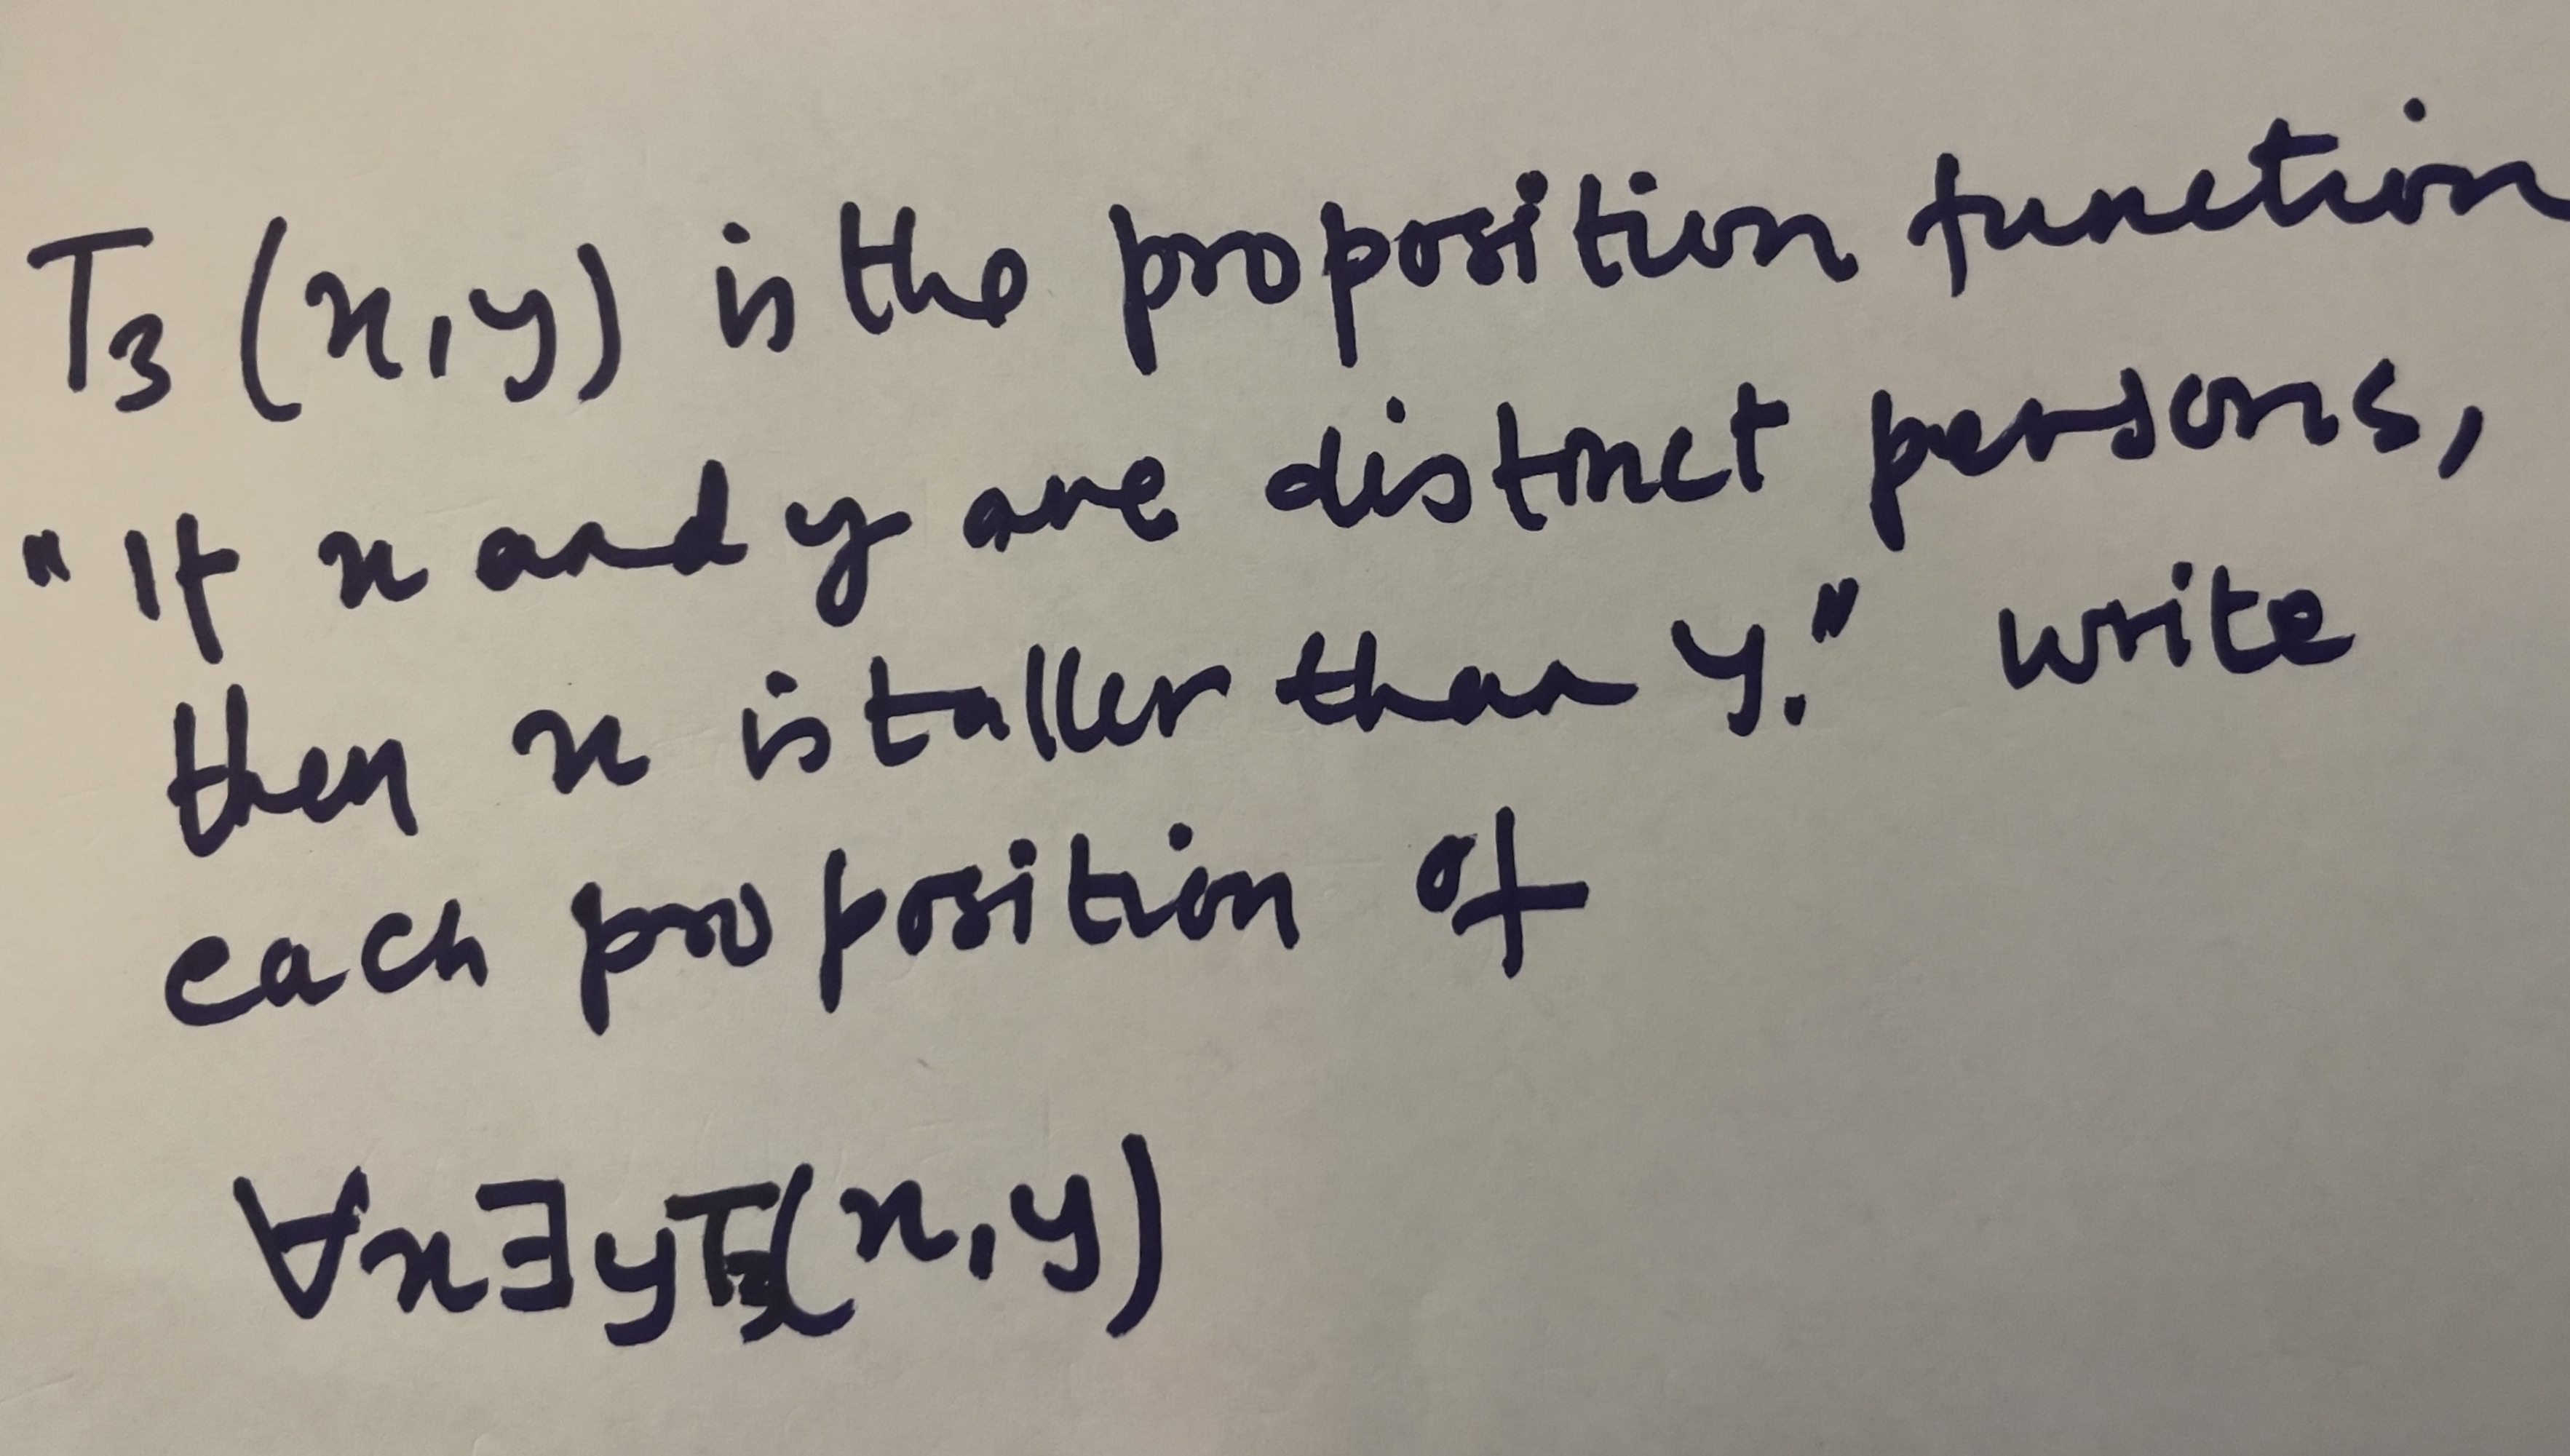 T₃ (x,y) is the proposition function
"If x and y are distinct persons,
then x is taller than y." write
each proposition of
∀x∃yT₃(x,y)